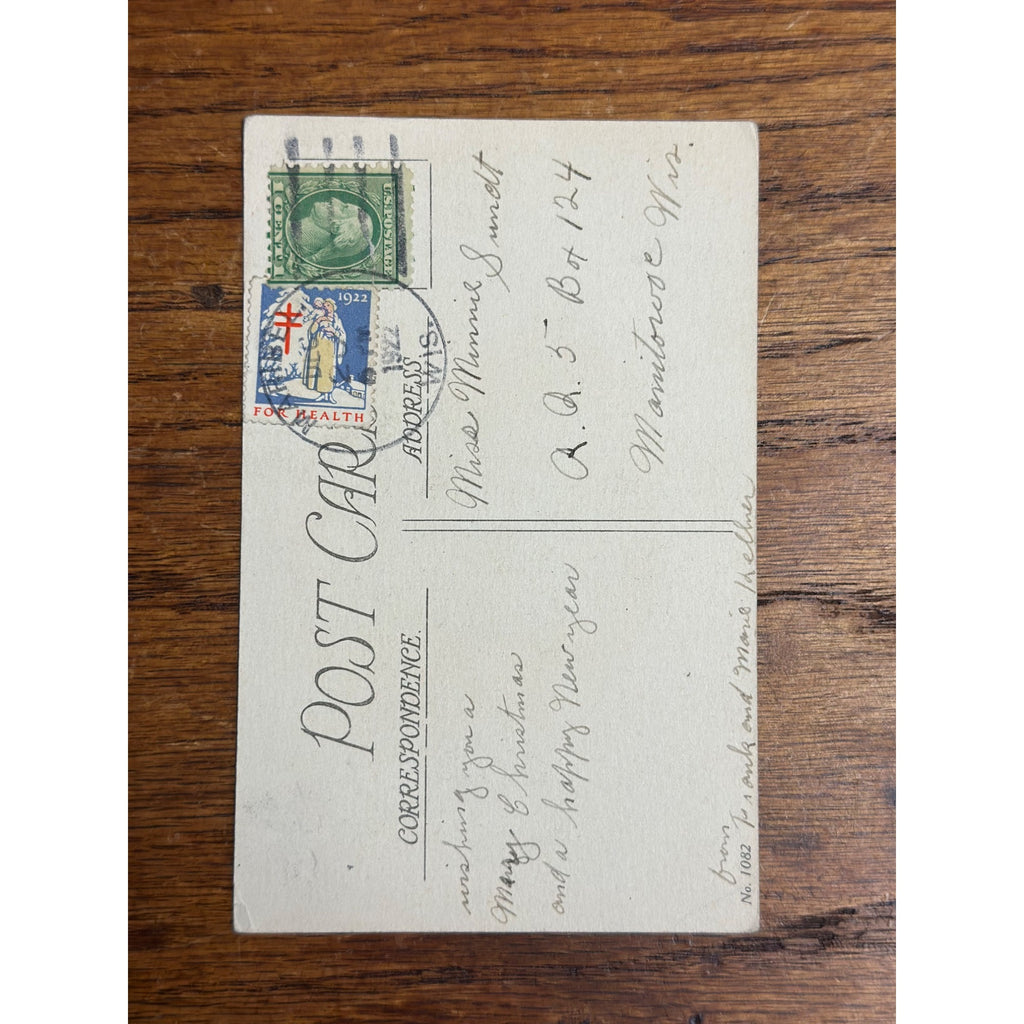 POST CARD
CORRESPONDENCE.
ADDRESS
U.S. POSTAGE
1 CENT 1
1922
FOR HEALTH
1922
WIS.
wishing you a
Mary Christmas
and a happy New year
from
Frank and Marie Kellner
Miss Minnie Sundt
R. R. 5 Box 124
Manitowoc Wis.
No. 1082